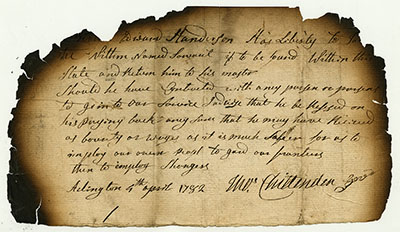 Edward Standerson Has Liberty to
the Within Named Servant if to be found Within this
State and Return him to his master
Should he have Enlisted with any person or persons
to join to our Service Advise that he be passed on
his paying back any Sum that he may have Recieved
as bounty or wages as it is much Safer for us to
imploy our own peopl to gard our frontiers
then to imploy Strongers
Arlington 4th april 1782 Thos. Chittenden Gov